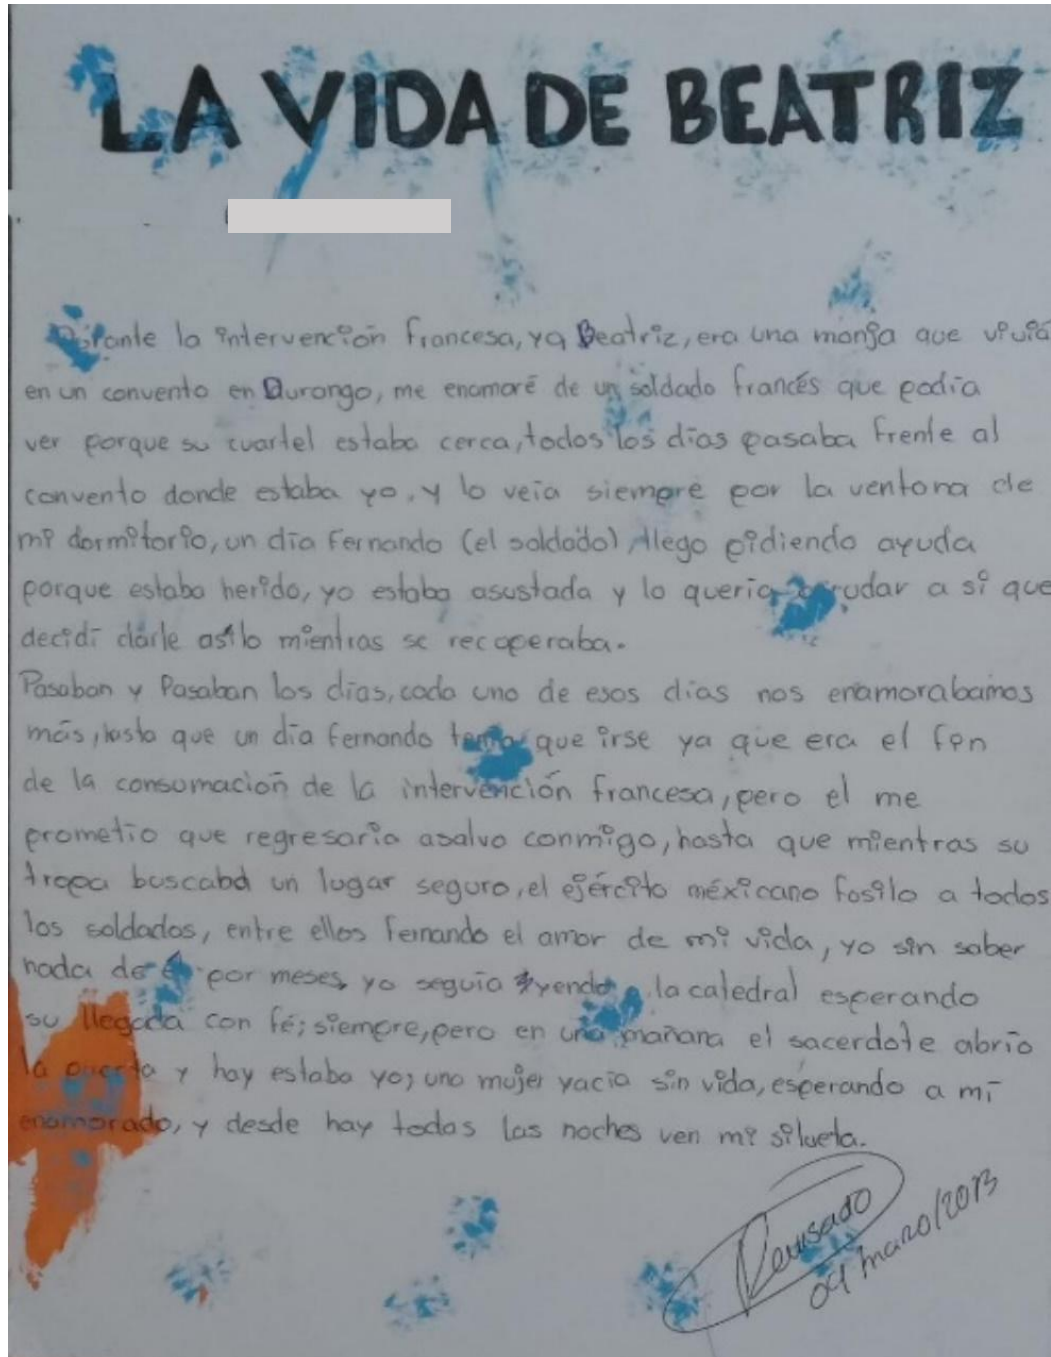 LA VIDA DE BEATRIZ
Durante la intervención francesa, ya Beatriz, era una monja que vivía
en un convento en Durongo, me enamoré de un soldado francés que podía
ver porque su cuartel estaba cerca, todos los días pasaba frente al
convento donde estaba yo, y lo veía siempre por la ventana de
mi dormitorio, un día Fernando (el soldado), llego pidiendo ayuda
porque estaba herido, yo estaba asustada y lo quería ayudar a si que
decidí darle asilo mientras se recoperaba.
Pasaban y Pasaban los días, cada uno de esos días nos enamorabamos
más, hasta que un día Fernando tenía que irse ya que era el fin
de la consumación de la intervención francesa, pero el me
prometio que regresaría asalvo conmigo, hasta que mientras su
tropa buscaba un lugar seguro, el ejército méxicano fosilo a todos
los soldados, entre ellos Fernando el amor de mi vida, yo sin saber
nada de él por meses, yo seguía yendo a la catedral esperando
su llegada con fé; siempre, pero en una mañana el sacerdote abrio
la puerta y hay estaba yo, una mujer vacía sin vida, esperando a mí
enamorado, y desde hay todas las noches ven mi silueta.
Revisado
04 marzo/2013